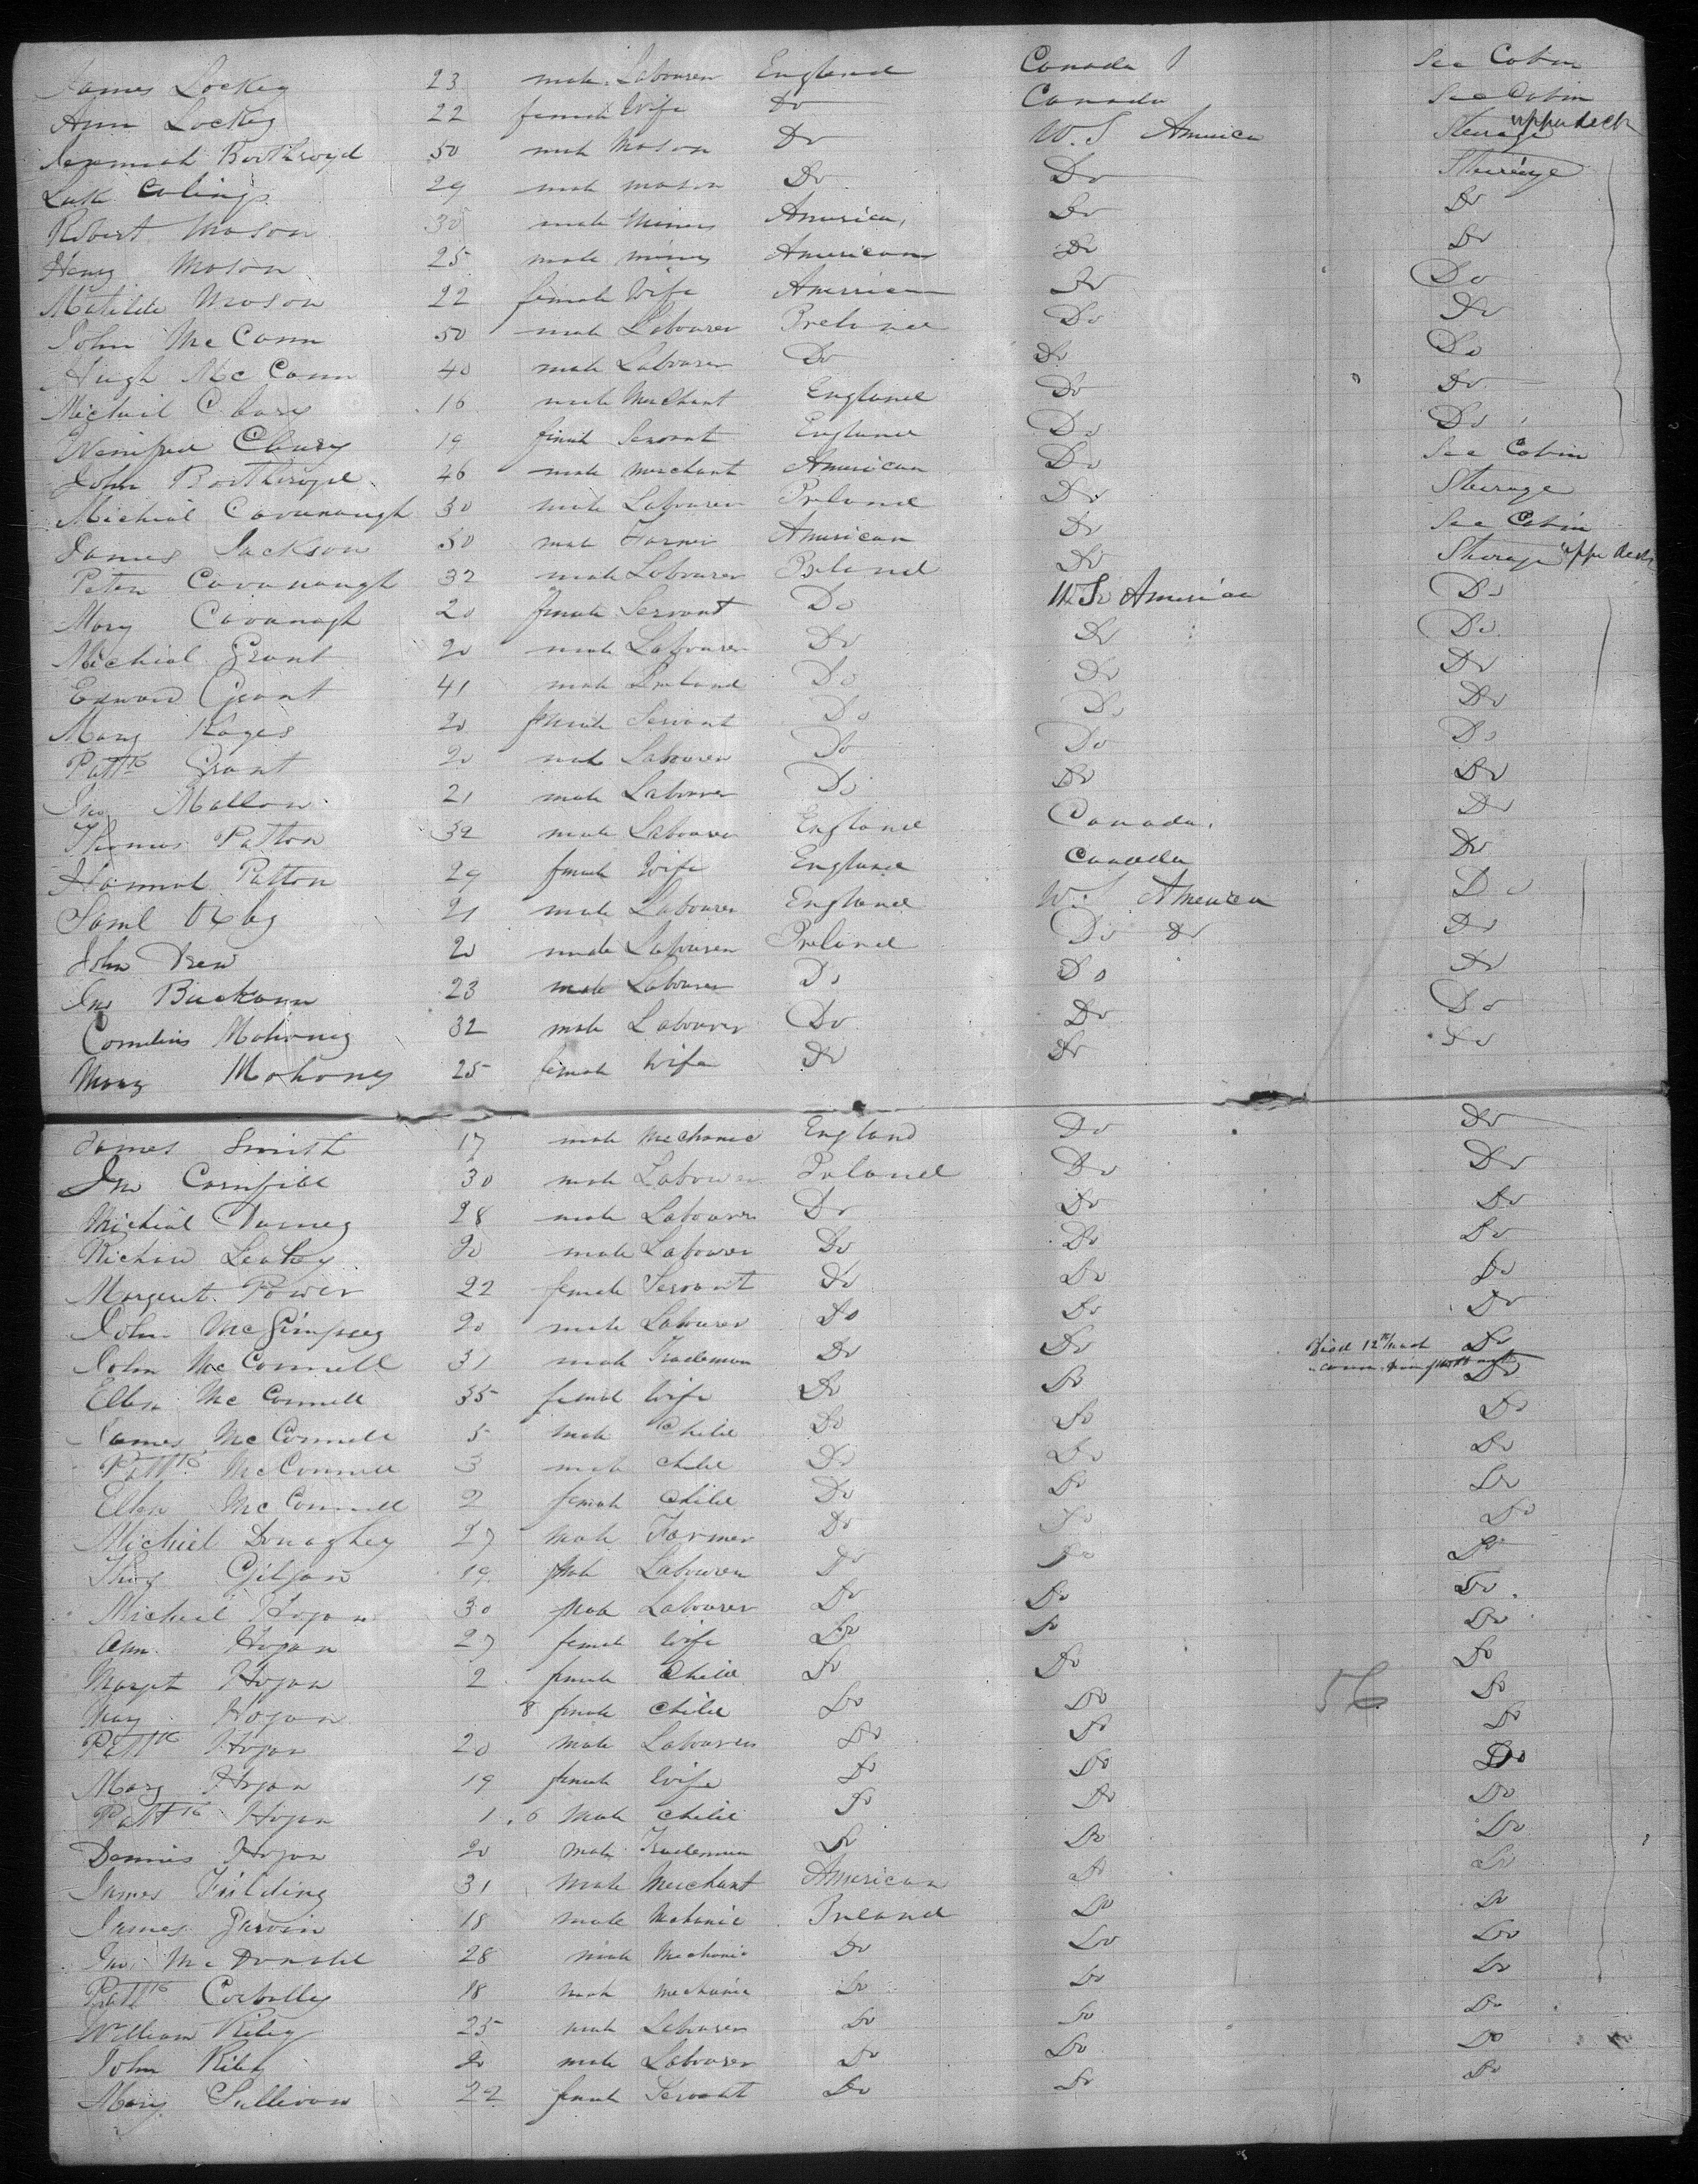 James Lockey 23 male Labourer England Canada Sec Cabin
Ann Lockey 22 female Wife Do Canada Sec Cabin
Jeremiah Boothroyd 50 male Mason Do W. S America Steerage upper deck
Luk Colings 29 male mason Do Do Steerage
Robert Mason 30 male Miner America Do Do
Henry Mason 25 male miner American Do Do
Matilda Mason 22 female Wife American Do Do
John McCann 50 male Labourer Ireland Do Do
Hugh McCann 40 male Labourer Do Do Do
Michail Clary 16 male Merchant England Do Do
Winifred Clary 19 female Servant England Do Do
John Boothroyd 46 male merchant American Do Sec Cabin
Michial Cavanaugh 30 male Labourer Ireland Do Steerage
James Jackson 50 male Farmer American Do Sec Cabin
Peter Cavanaugh 32 male Labourer Ireland Do Steerage uppe deck
Mary Cavanagh 20 female Servant Do W. S America Do
Michial Grant 20 male Labourer Do Do Do
Edward Grant 41 male Do Do Do
Mary 20 female Servant Do Do Do
Pattk Grant 20 male Labourer Do Do Do
Jno Mallow 21 male Labourer Do Do Do
Thomas Patton 32 male Labourer England Canada Do
Hannah Patton 29 female Wife England Canada Do
Saml Oxby 21 male Labourer England W. S America Do
John Drew 20 male Labourer Ireland Do Do Do
Jno Buckann 23 male Labourer Do Do Do
Cornelius Mahoney 32 male Labourer Do Do Do
Mary Mahoney 25 female Wife Do Do Do
James Smith 17 male Mechanic England Do Do
Jno Cornfill 30 male Labourer Ireland Do Do
Michial 28 male Labourer Do Do Do
Richard Leahy 20 male Labourer Do Do Do
Margeret Power 22 female Servant Do Do Do
John McGimpsey 20 male Labourer Do Do Do
John McConnell 31 male Tradesman Do Do Died 12th Do
Ellen McConnell 35 female Wife Do Do Do
James McConnell 5 male Child Do Do Do
Pattk McConnell 3 male child Do Do Do
Ellen McConnell 2 female child Do Do Do
Michiel Donaghey 27 Male Farmer Do Do Do
Thos Gilgan 19 Male Labourer Do Do Do
Michiel Hogan 30 Male Labourer Do Do Do
Ann Hogan 27 female Wife Do Do Do
Margt Hogan 2 female Child Do Do Do
Mary Hogan 8 female Child Do Do 56 Do
Pattk Hogan 20 Male Labourer Do Do Do
Mary Hogan 19 female Wife Do Do Do
Pattk Hogan 1.6 Male child Do Do Do
Dennis Hogan 20 male Tradesman Do Do Do
James Fielding 31 Male Merchant American Do Do
James Garvin 18 male Mechanic Ireland Do Do
Jno McDonald 28 male Mechanic Do Do Do
Pattk Corbolly 18 male mechanic Do Do Do
William Riley 25 male Labourer Do Do Do
John Riley 20 male Labourer Do Do Do
Mary Sullivan 22 female Servant Do Do Do